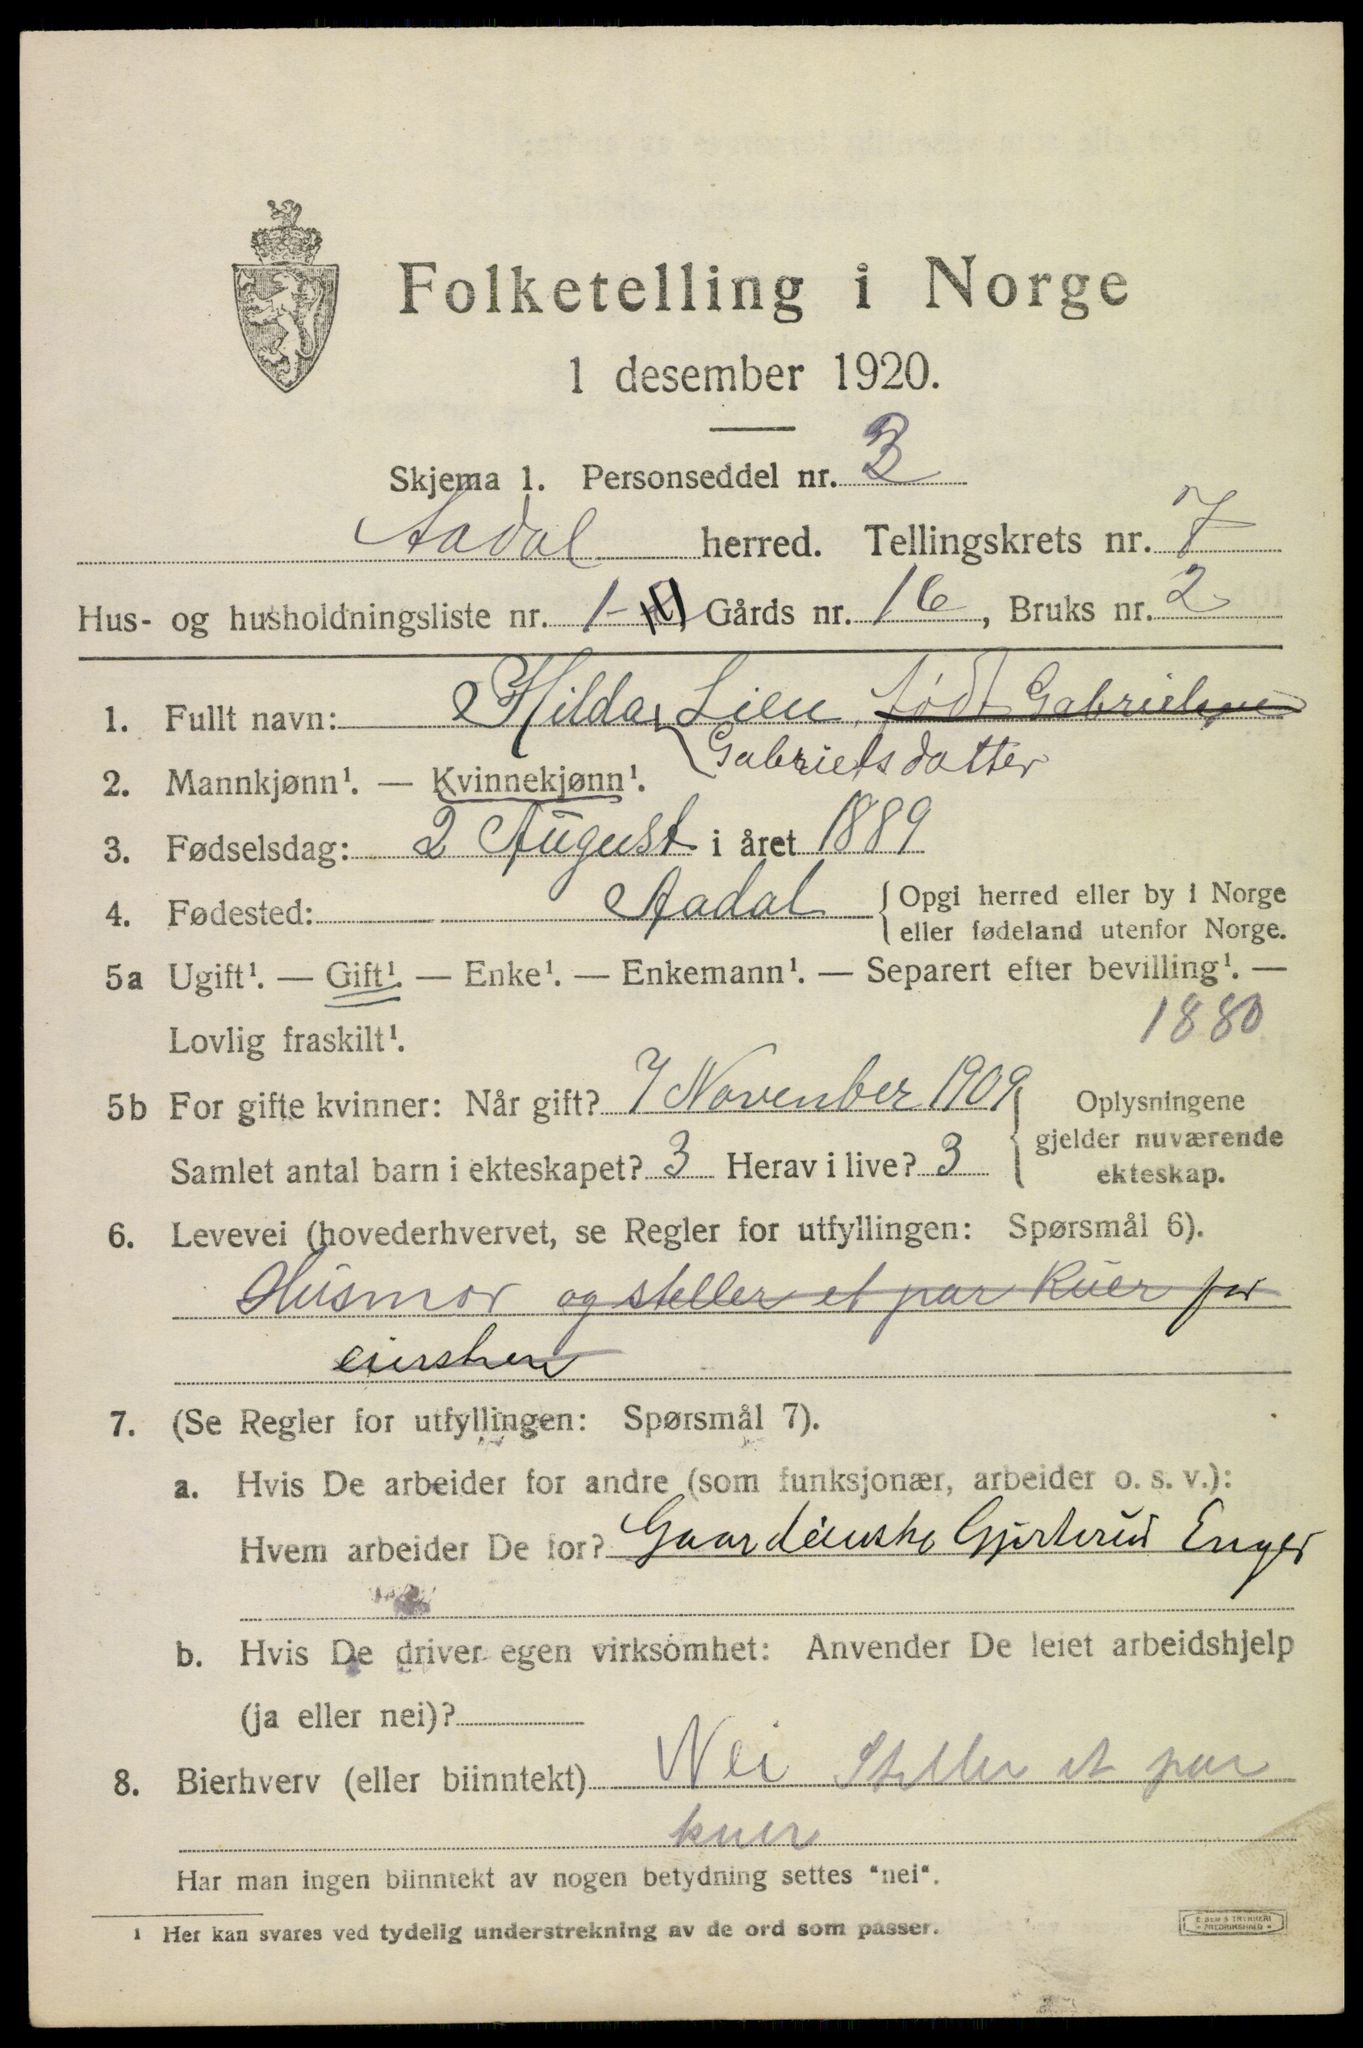 Folketelling i Norge
1 desember 1920.
Skjema 1. Personseddel nr. 3
Aadal herred. Tellingskrets nr. 7
Hus- og husholdningsliste nr. 1- Gårds nr. 16, Bruks nr. 2
1. Fullt navn: Hilda Lien, født Gabrielsen
Gabrielsdatter
2. Mannkjønn¹. — Kvinnekjønn¹.
3. Fødselsdag: 2 August i året 1889
4. Fødested: Aadal { Opgi herred eller by i Norge
eller fødeland utenfor Norge.
5a Ugift¹. — Gift¹. — Enke¹. — Enkemann¹. — Separert efter bevilling¹. —
Lovlig fraskilt¹. 1880
5b For gifte kvinner: Når gift? 7 November 1909 { Oplysningene
gjelder nuværende
Samlet antal barn i ekteskapet? 3 Herav i live? 3 ekteskap.
6. Levevei (hovederhvervet, se Regler for utfyllingen: Spørsmål 6).
Husmor og steller et par kuer for
7. (Se Regler for utfyllingen: Spørsmål 7).
a. Hvis De arbeider for andre (som funksjonær, arbeider o. s. v.):
Hvem arbeider De for? Enger
b. Hvis De driver egen virksomhet: Anvender De leiet arbeidshjelp
(ja eller nei)?
8. Bierhverv (eller biinntekt) Nei Steller et par
kuer
Har man ingen biinntekt av nogen betydning settes "nei".
¹ Her kan svares ved tydelig understrekning av de ord som passer.